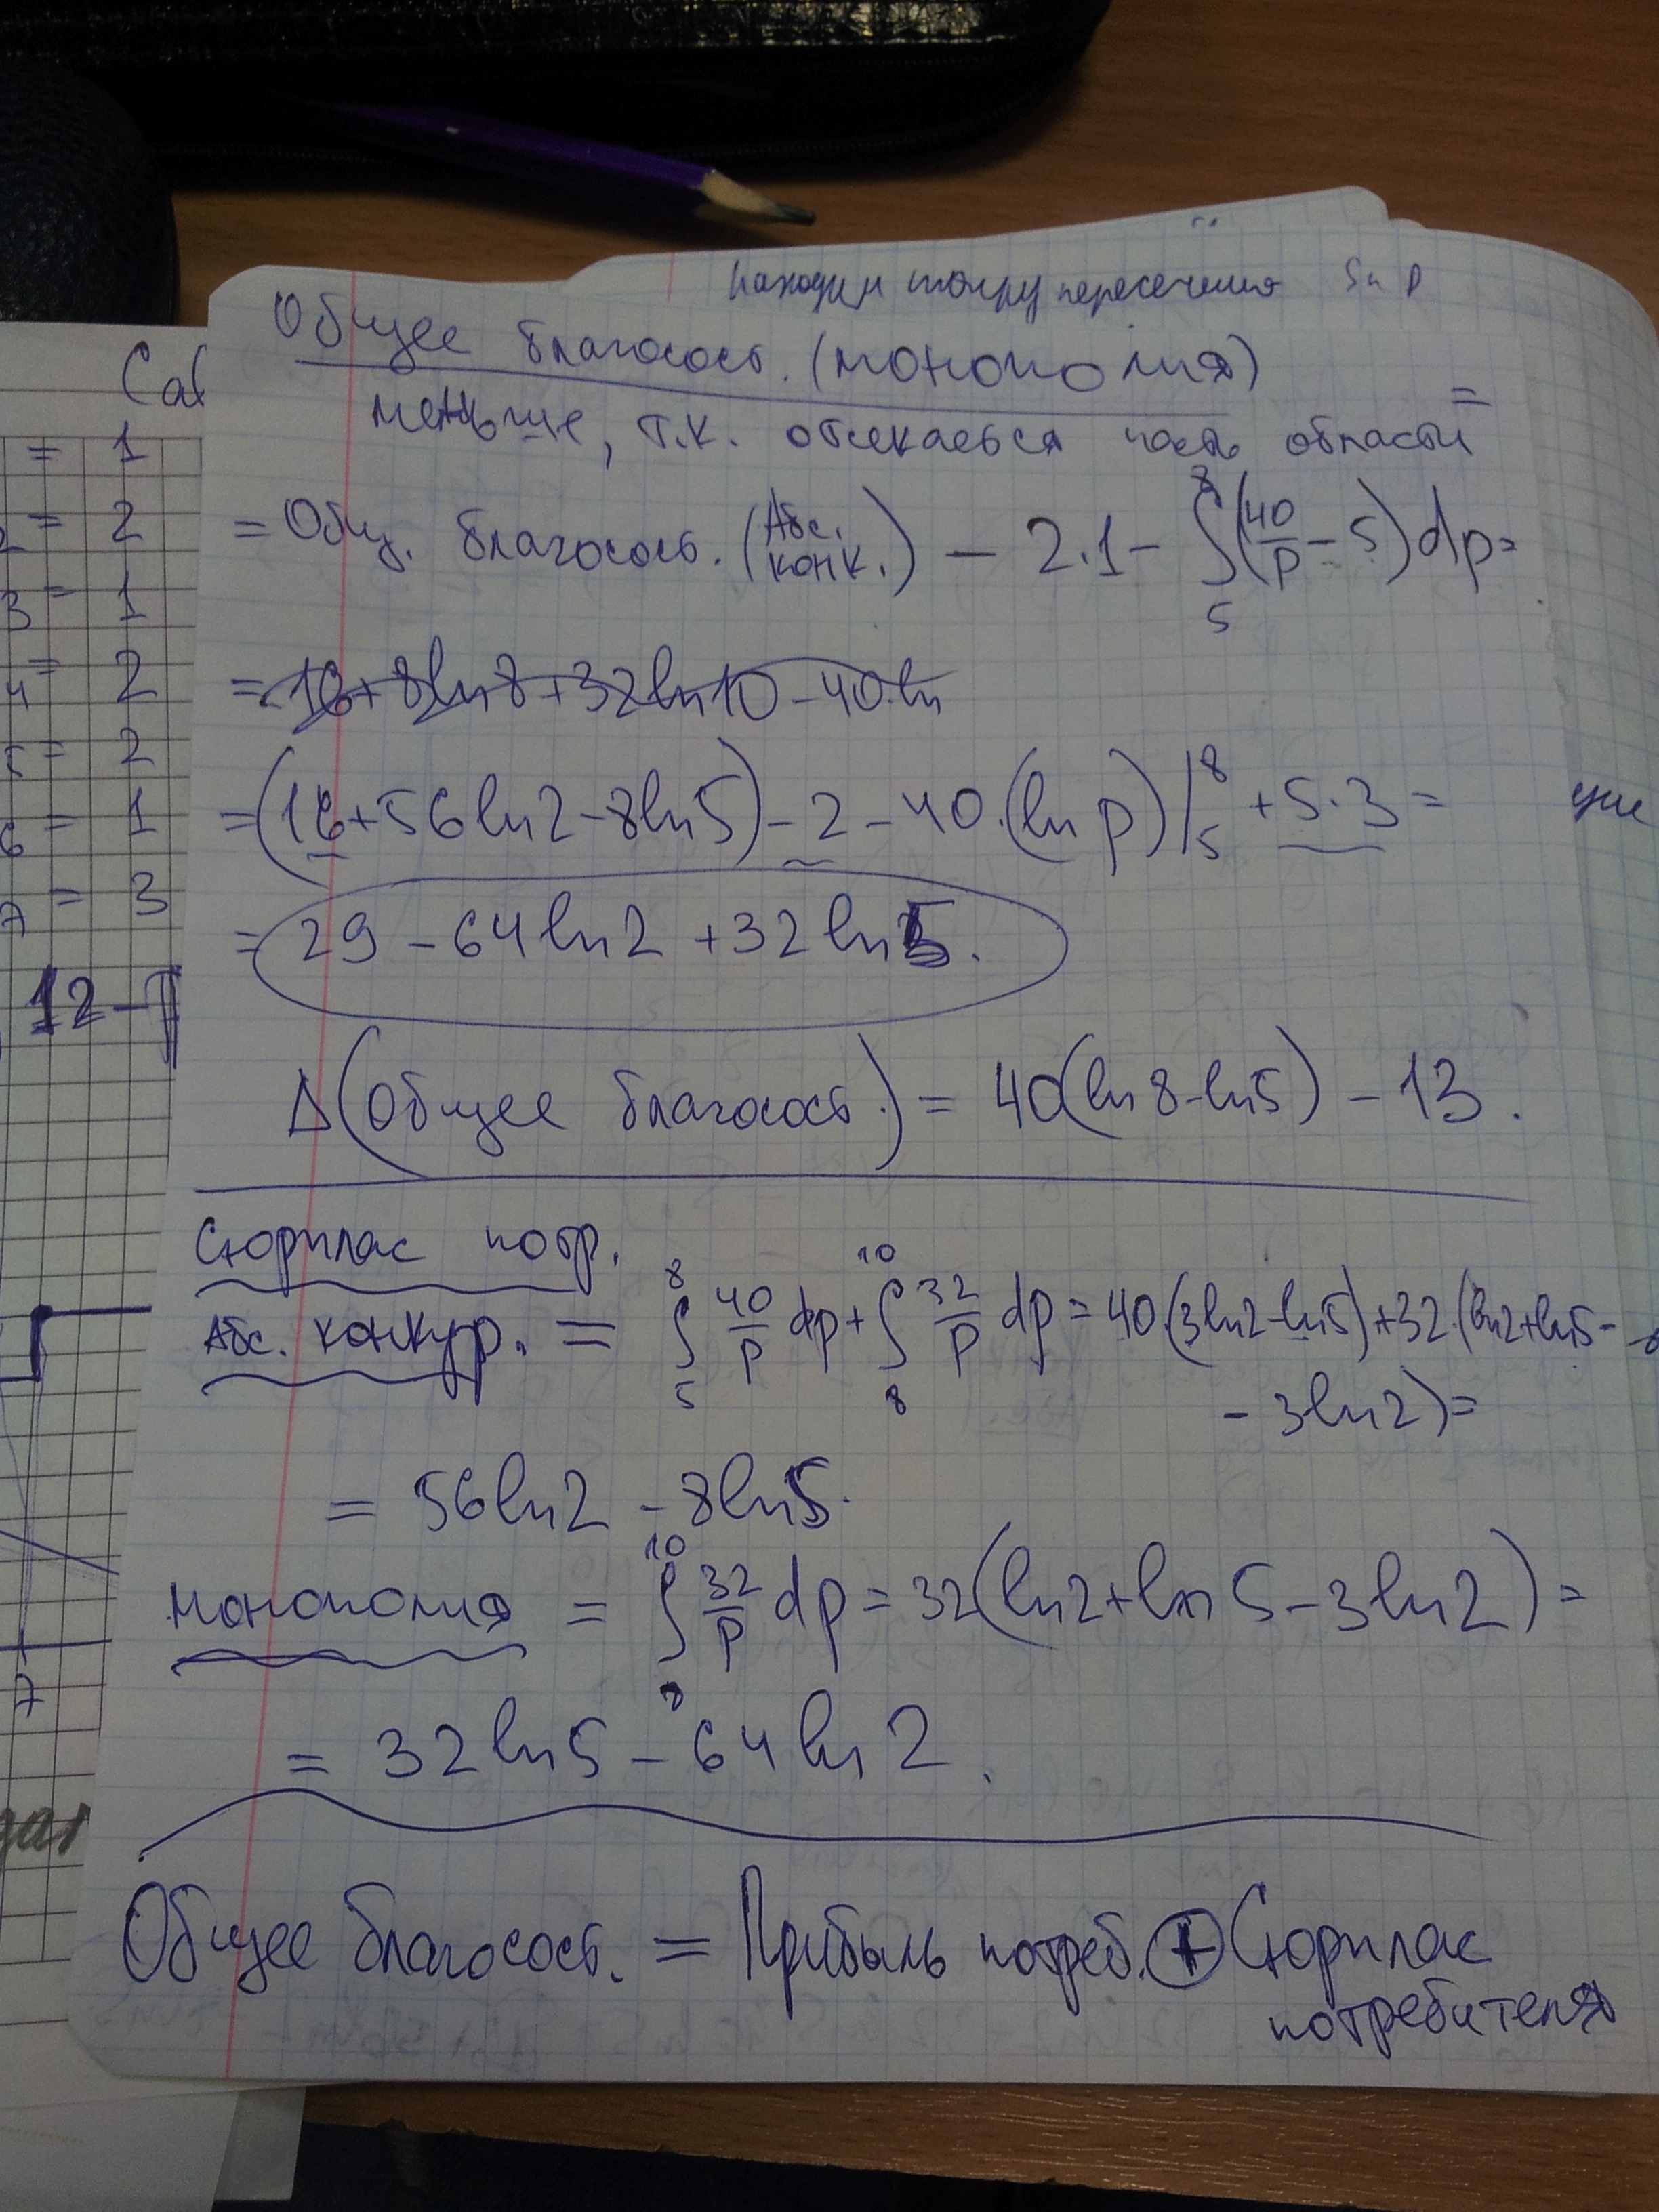 Находим точку пересечения S и D
Общее благосост. (монополия) =
меньше, т.к. отсекается часть области
= Общ. благосост. (Абс. конк.) - 2·1 - ∫₅⁸(40/p - 5)dp =
= 16+8ln8+32ln10-40·ln
= (16+56ln2-8ln5) - 2 - 40·(ln p)|₅⁸ + 5·3 =
= 29 - 64ln2 + 32ln5.
Δ(Общее благосост.) = 40(ln8-ln5) - 13.
Сюрплас потр.
Абс. конкур. = ∫₅⁸ 40/p dp + ∫₈¹⁰ 32/p dp = 40·(3ln2-ln5)+32·(ln2+ln5-
-3ln2)=
= 56ln2 - 8ln5.
монополия = ∫₈¹⁰ 32/p dp = 32(ln2+ln5-3ln2) =
= 32ln5 - 64ln2.
Общее благосост. = Прибыль потреб. + Сюрплас
потребителя
= 1
2 = 2
3 = 1
4 = 2
5 = 2
6 = 1
7 = 3
12-
7